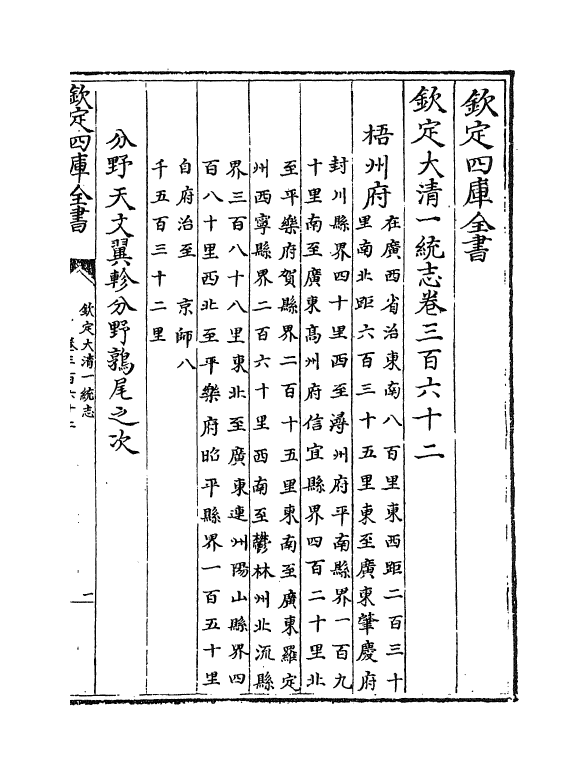 欽定四庫全書
欽定大清一統志卷三百六十二
梧州府
在廣西省治東南八百里東西距二百三十
里南北距六百三十五里東至廣東肇慶府
封川縣界四十里西至潯州府平南縣界一百九
十里南至廣東髙州府信宜縣界四百二十里北
至平樂府賀縣界二百十五里東南至廣東羅定
州西寧縣界二百六十里西南至鬱林州北流縣
界三百八十八里東北至廣東連州陽山縣界四
百八十里西北至平樂府昭平縣界一百五十里
自府治至 京師八
千五百三十二里
分野天文翼軫分野鶉尾之次
欽定四庫全書
欽定大清一統志
卷三百六十二
一